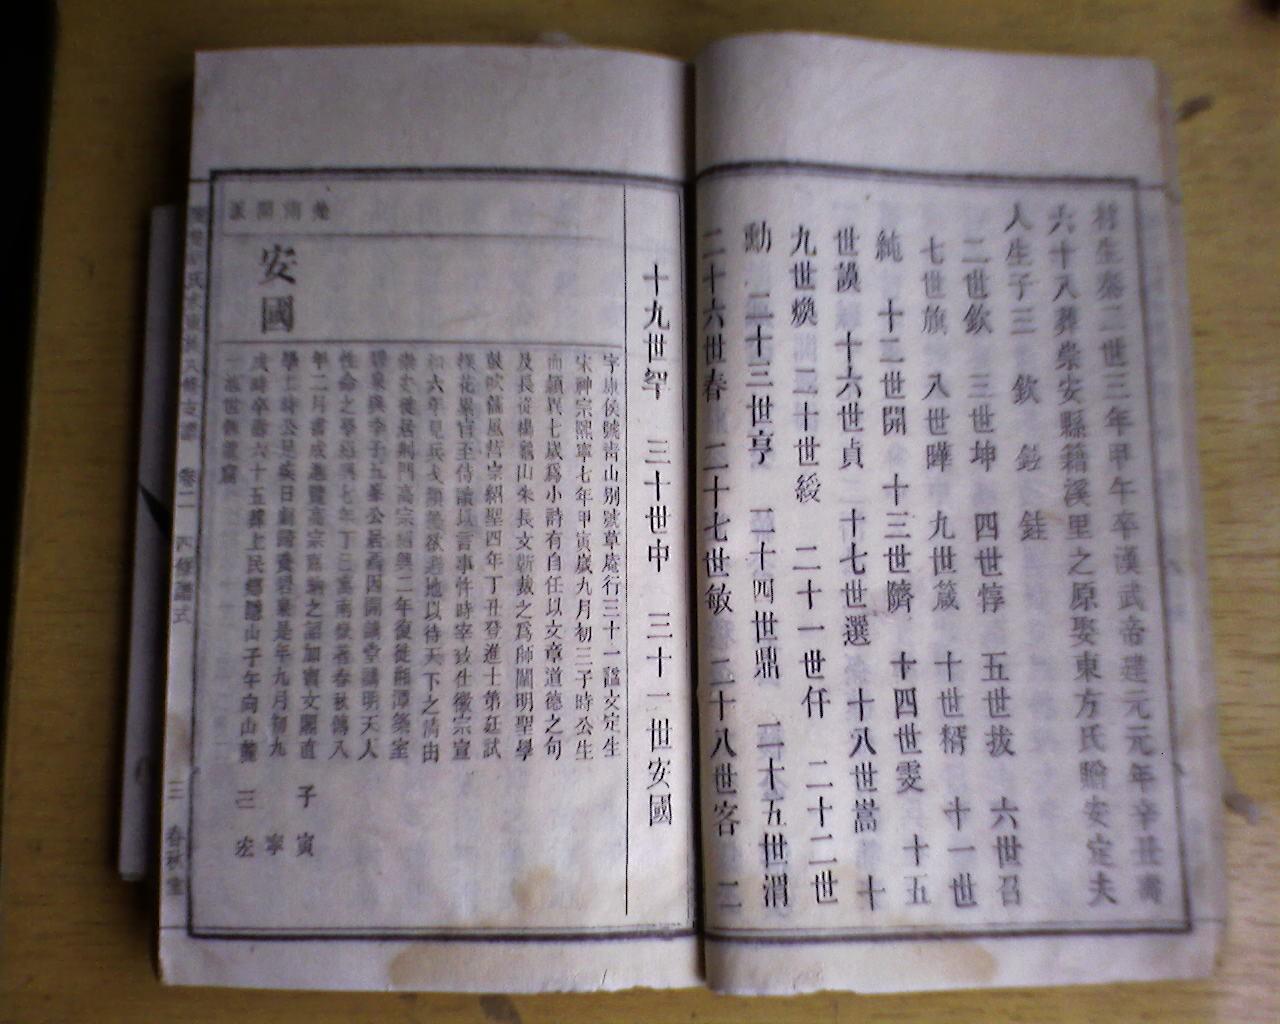 村生秦二世三年甲午卒漢武帝建元元年辛丑壽
六十八葬崇安縣籍溪里之原娶東方氏贈安定夫
人生子三 欽
二世欽 三世坤 四世惇 五世拔 六世召
七世旗 八世曄 九世箴 十世楈 十一世
純 十二世開 十三世隮 十四世雯 十五
世談 十六世貞 十七世選 十八世嵩 十
九世煥 二十世綏 二十一世仟 二十二世
勳 二十三世亨 二十四世鼎 二十五世渭
二十六世春 二十七世敏 二十八世客 二
十九世 三十世中 三十一世安國
安國
字康侯號青山别號草庵行三十一諡文定生
宋神宗熙寧七年甲寅歲九月初三子時公生
而穎異七歲爲小詩有自任以文章道德之句
及長從楊龜山朱長文靳裁之爲師闡明聖學
紹聖四年丁丑登進士第廷試
探花累官至侍講以言事忤時宰致仕徽宗宣
和六年見兵戈擾攘欲避地以待天下之清由
崇安徙居荊門高宗紹興二年復徙湘潭築室
碧泉與季子五峯公居焉因開講堂講明天人
性命之學紹興七年丁巳著春秋傳八
年二月書成進覽高宗嘉納之詔加寶文閣直
學士 是年九月初九
戌時卒壽六十五葬上民鄉隱山子午向
子 寅
寧
三 宏
卷二 四修譜式
三 春秋堂